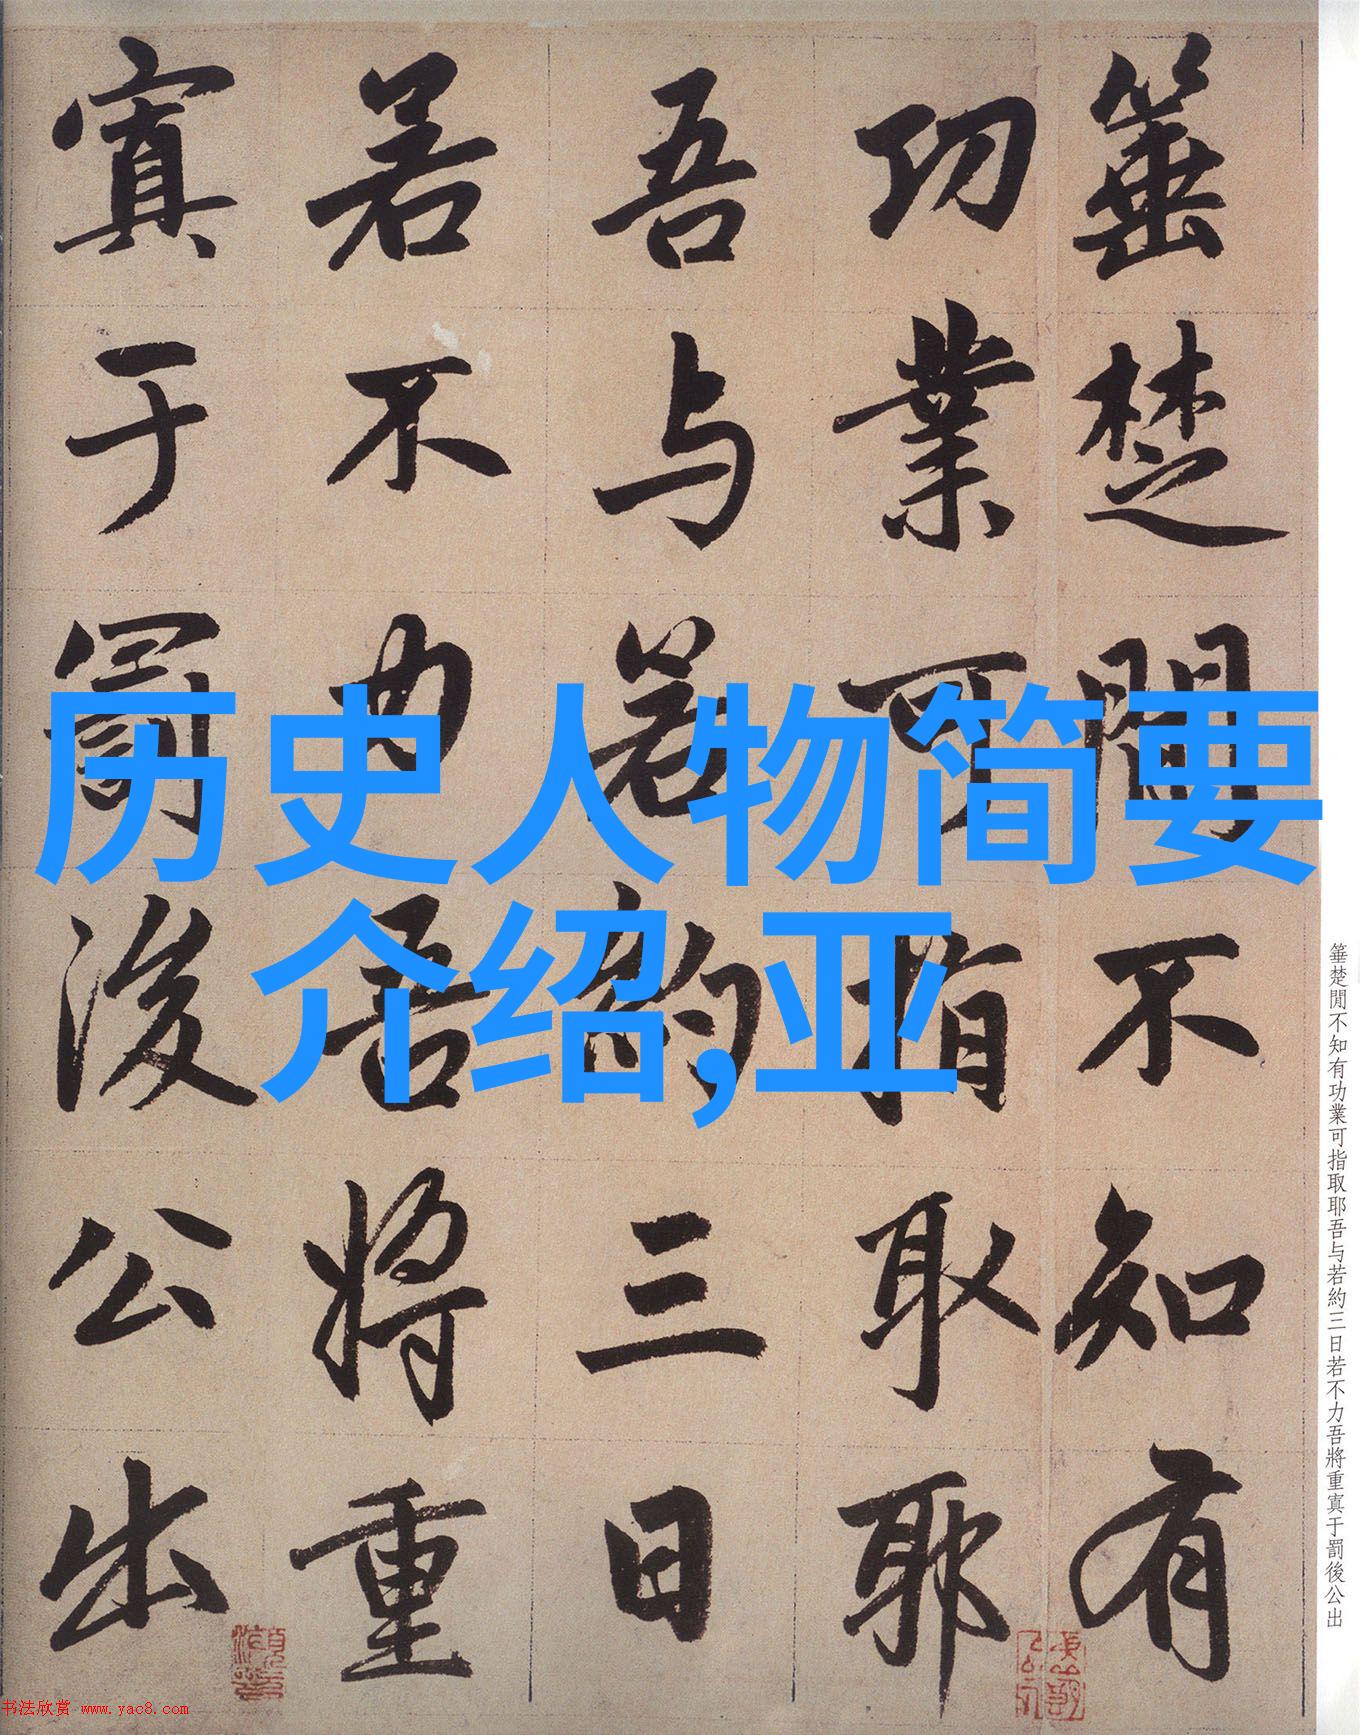 箠楚閒不知有
功業可指取耶
吾与若約三日
若不力吾將重
寘于罰後公出
历史人物简要
介绍,亚
箠楚閒不知有功業可指取耶吾与若約三日若不力吾將重寘于罰後公出
书法欣赏 www.yac8.com